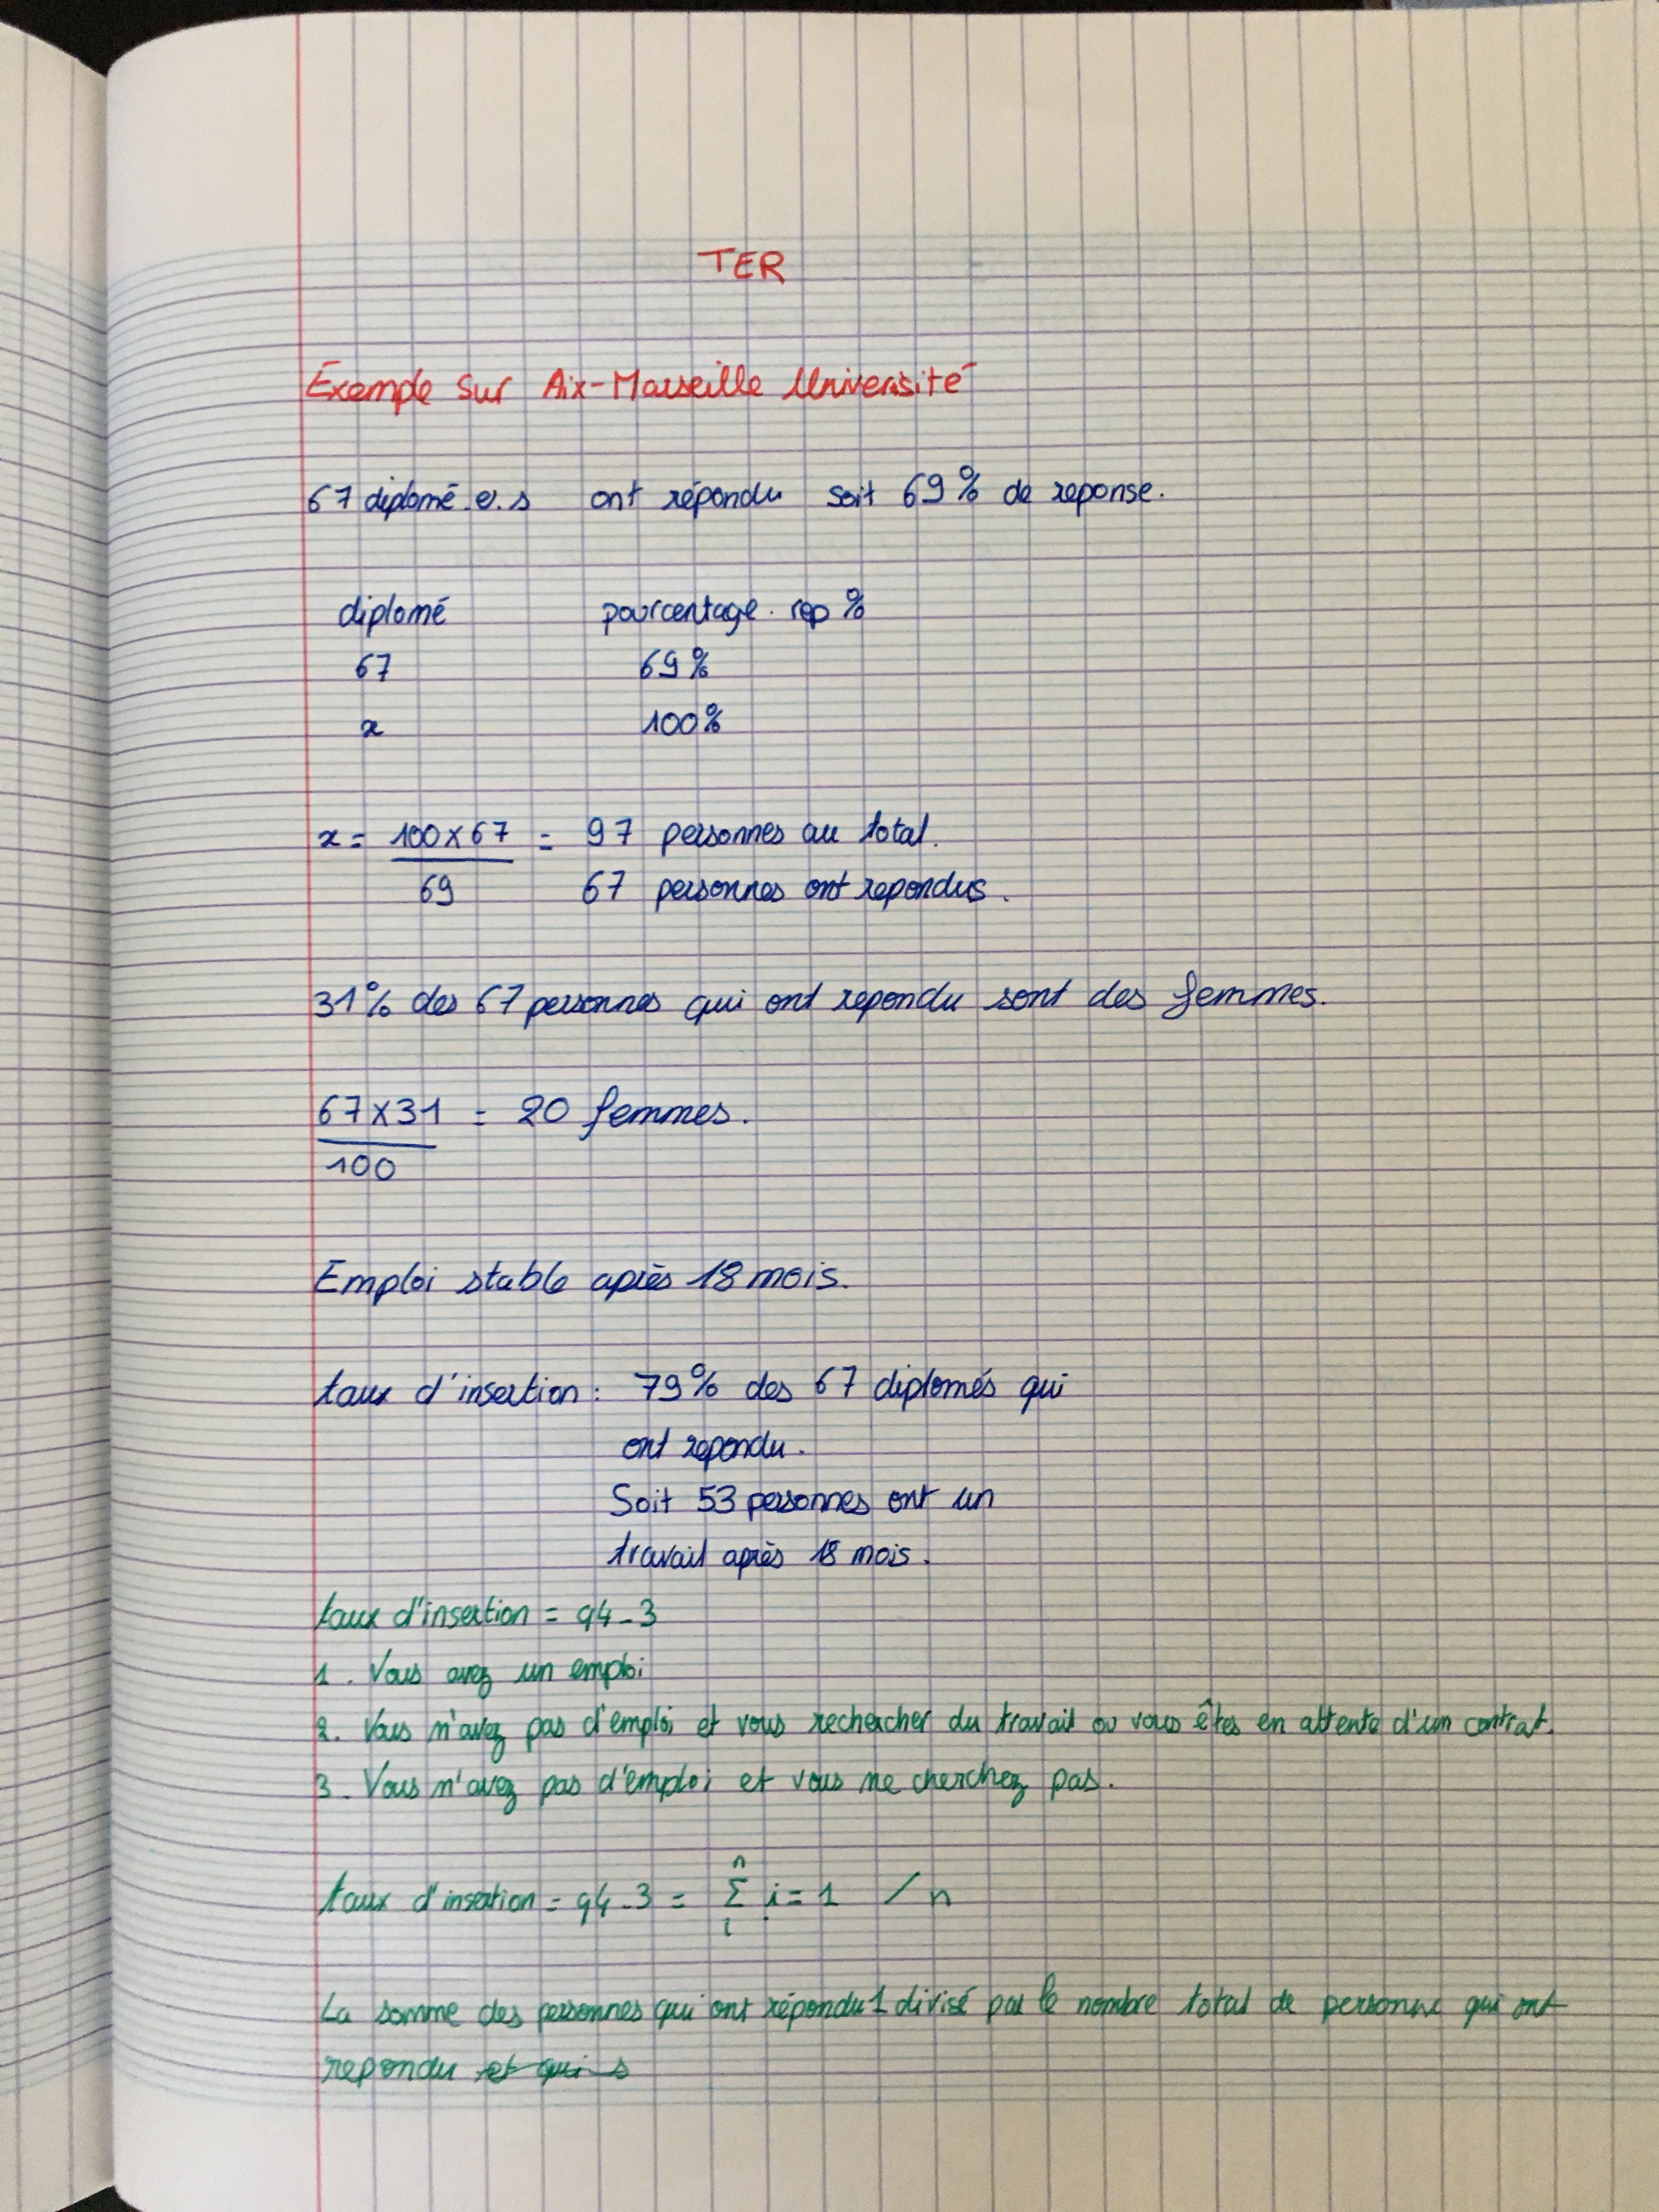 TER
Exemple sur Aix-Marseille Université
67 diplomé.e.s ont répondu soit 69% de reponse.
diplomé pourcentage. rep %
67 69%
x 100%
x = 100 x 67 = 97 personnes au total.
69 67 personnes ont repondus.
31% des 67 personnes qui ont repondu sont des femmes.
67 x 31 = 20 femmes.
100
Emploi stable après 18 mois.
taux d'insertion : 79% des 67 diplomés qui
ont repondu.
Soit 53 personnes ont un
travail après 18 mois.
taux d'insertion = q4_3
1. Vous avez un emploi
2. Vous n'avez pas d'emploi et vous rechercher du travail ou vous êtes en attente d'un contrat.
3. Vous n'avez pas d'emploi et vous ne cherchez pas.
n
taux d'insertion = q4_3 = Σ i = 1 / n
i
La somme des personnes qui ont répondu 1 divisé par le nombre total de personne qui ont
repondu et qui s